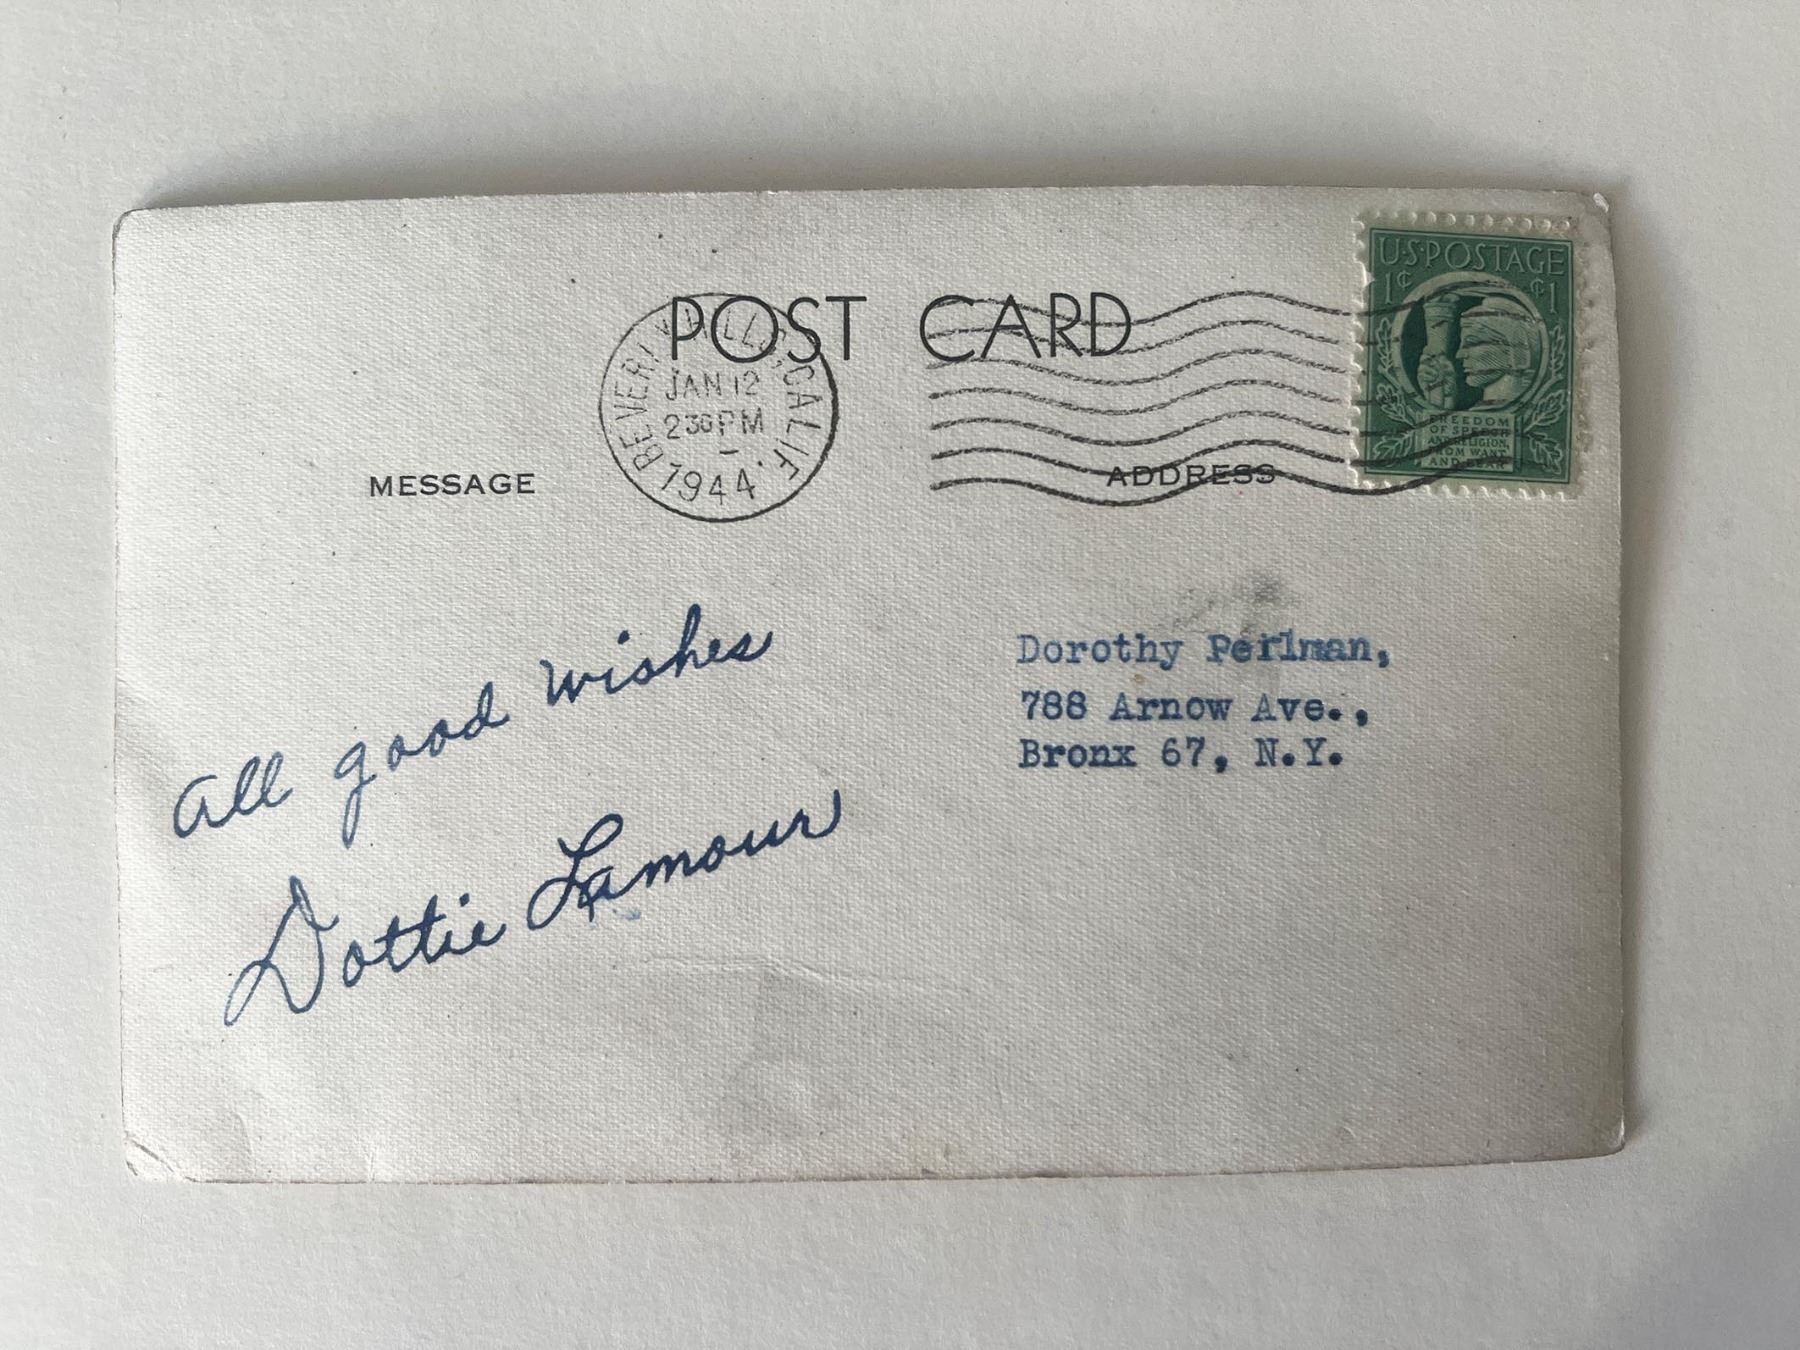 POST CARD
BEVERLY HILLS, CALIF.
JAN 12
2 30 PM
1944
U·S·POSTAGE
1¢ ¢1
FREEDOM
OF SPEECH
AND RELIGION,
FROM WANT
AND FEAR
MESSAGE
ADDRESS
All good wishes
Dottie Lamour
Dorothy Perlman,
788 Arnow Ave.,
Bronx 67, N.Y.